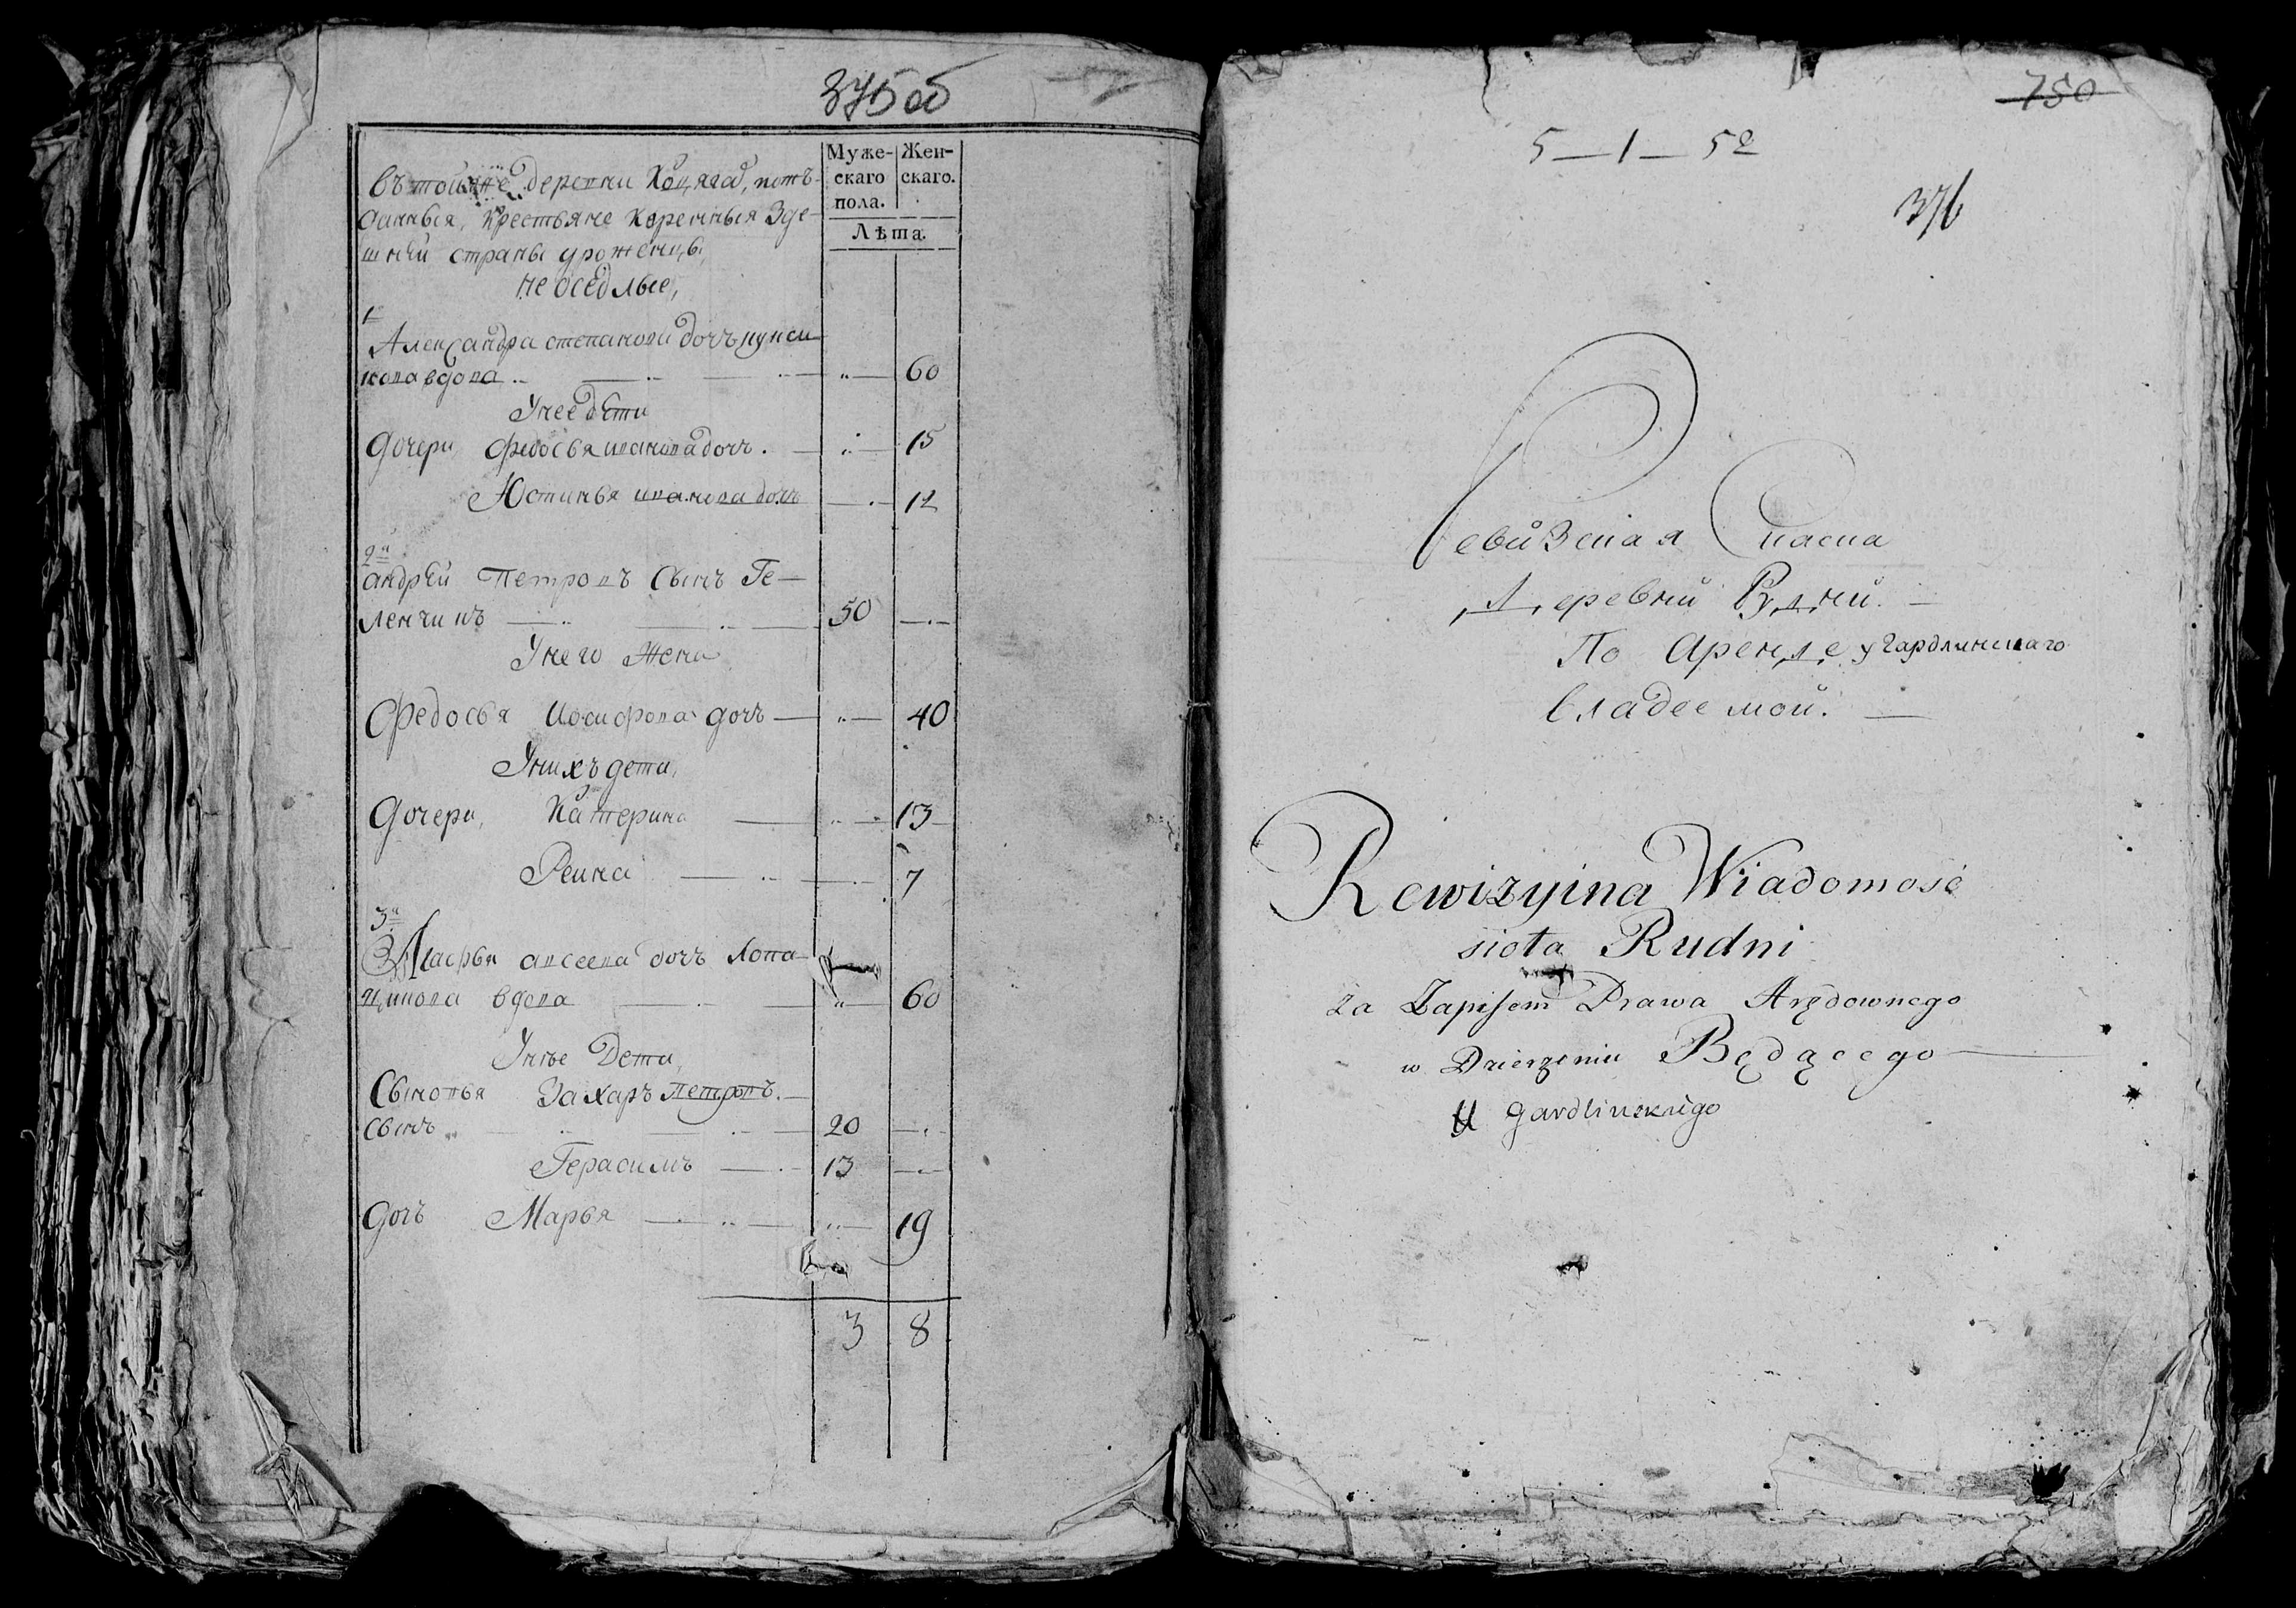 375об
Муже-
скаго
пола.
Жен-
скаго.
Лѣта.
въ той же деревни
данныя, крестьяне коренныя Зде-
шней страны уроженцы,
не оседлые,
1
Александра степанова дочъ
вдова 60
У нее дети
Дочери Федосья иванова дочъ. 15
Юстинья иванова дочъ 12
2я
андрей Петровъ Сынъ Ге-
ленчикъ 50
У него жена
Федосья Иосифова дочъ 40
У нихъ дети,
Дочери, Катерина 13
7
3я
дочъ Лопа-
вдова 60
У нее Дети,
Сыновья Захаръ Петровъ.
Сынъ 20
Герасимъ 13
Дочъ Марья 19
3 8
750
5—1—52
376
Ревизская Сказка
Деревни Рудни.
По Аренде у Гардлинскаго
владеемой.
Rewizyina Wiadomosć
sioła Rudni
za Zapisem Prawa Arędownego
w Dzierżeniu Będącego
U Gardlinskiego